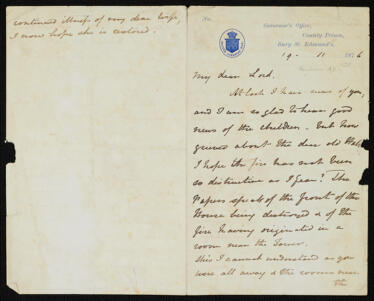 continued illness of my dear wife,
I now hope she is restored.
No.
Governor's Office,
County Prison,
Bury St. Edmund's.
19 - 11 1876
My dear Lord.
At last I have news of you,
and I am so glad to hear good
news of the children. But how
grieved about the dear old Hall,
I hope the fire has not been
so destructive as I fear! The
Papers speak of the front of the
House being destroyed & of the
fire having originated in a
room near the Tower.
this I cannot understand as you
were all away & the rooms near
the